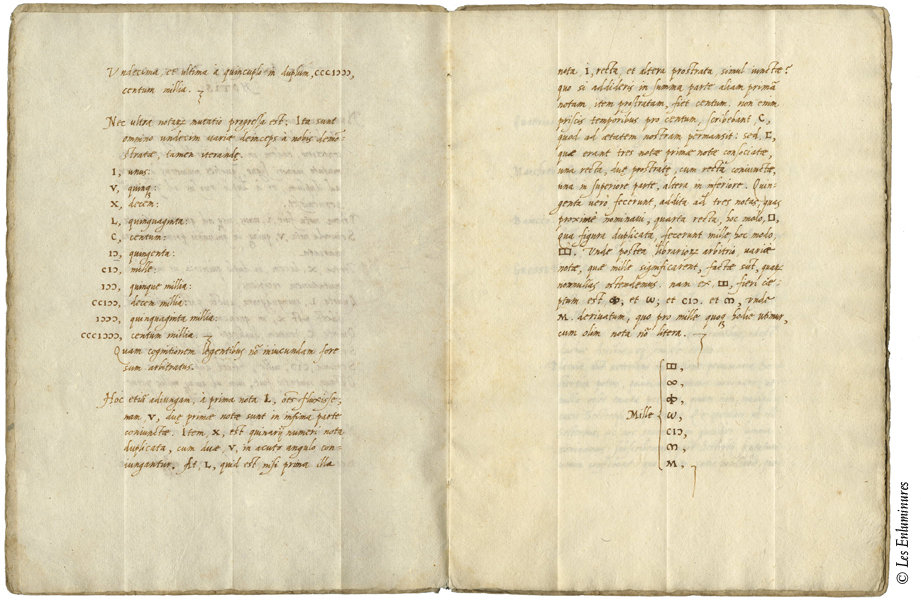 Vndecima, et ultima à quincuplo in duplum, CCCIↃↃↃ,
centum millia.
Nec ultra notarum mutatio progressa est. Ita sunt
omnino undecim uariæ deinceps à nobis demõ-
stratæ, tamen iterandæ.
I, unus:
V, quinq;:
X, decem:
L, quinquaginta:
C, centum:
IↃ, quingenta:
CIↃ, mille:
IↃↃ, quinque millia:
CCIↃↃ, decem millia:
IↃↃↃ, quinquaginta millia:
CCCIↃↃↃ, centum millia.
Quam cognitionem legentibus nõ iniucundam fore
sum arbitratus.
Hoc etiã adiungam, à prima nota I, oẽs fluxisse;
nam V, duę primæ notæ sunt in infima parte
coniunctæ. Item, X, est quinarij numeri nota
duplicata, cum duæ, V, in acuto angulo con-
iungantur. At, L, quid est nisi prima illa
nota I, recta, et altera prostrata, simul iunctæ?
quo si addideris in summa parte aliam primã
notam item prostratam, fiet centum. non enim
priscis temporibus pro centum, scribebant C,
quod ad ætatem nostram permansit: sed, ⊏,
quæ erant tres notæ primæ notæ consociatæ,
una recta, duę prostratę, cum rectã coniunctæ,
una in superiore parte, altera in inferiore. Quin-
genta uero fecerunt, addita ad tres notas, quas
proxime nominaui, quarta recta, hoc modo, □,
Qua figura duplicata, fecerunt mille, hoc modo,
▯▯. Vnde postea librariorum arbitrio, uariæ
notæ, quæ mille significarent, factæ sũt, quas
nonnullas ostendemus. nam ex ▯▯, fieri cæ-
ptum est, Φ, et ω, et CIↃ. et ო, vnde
M. deriuatum, quo pro mille quoq; hodie utimur,
cum olim nota nõ litera.
▯▯,
∞,
Φ,
Mille ω,
CIↃ,
ო,
M,
© Les Enluminures